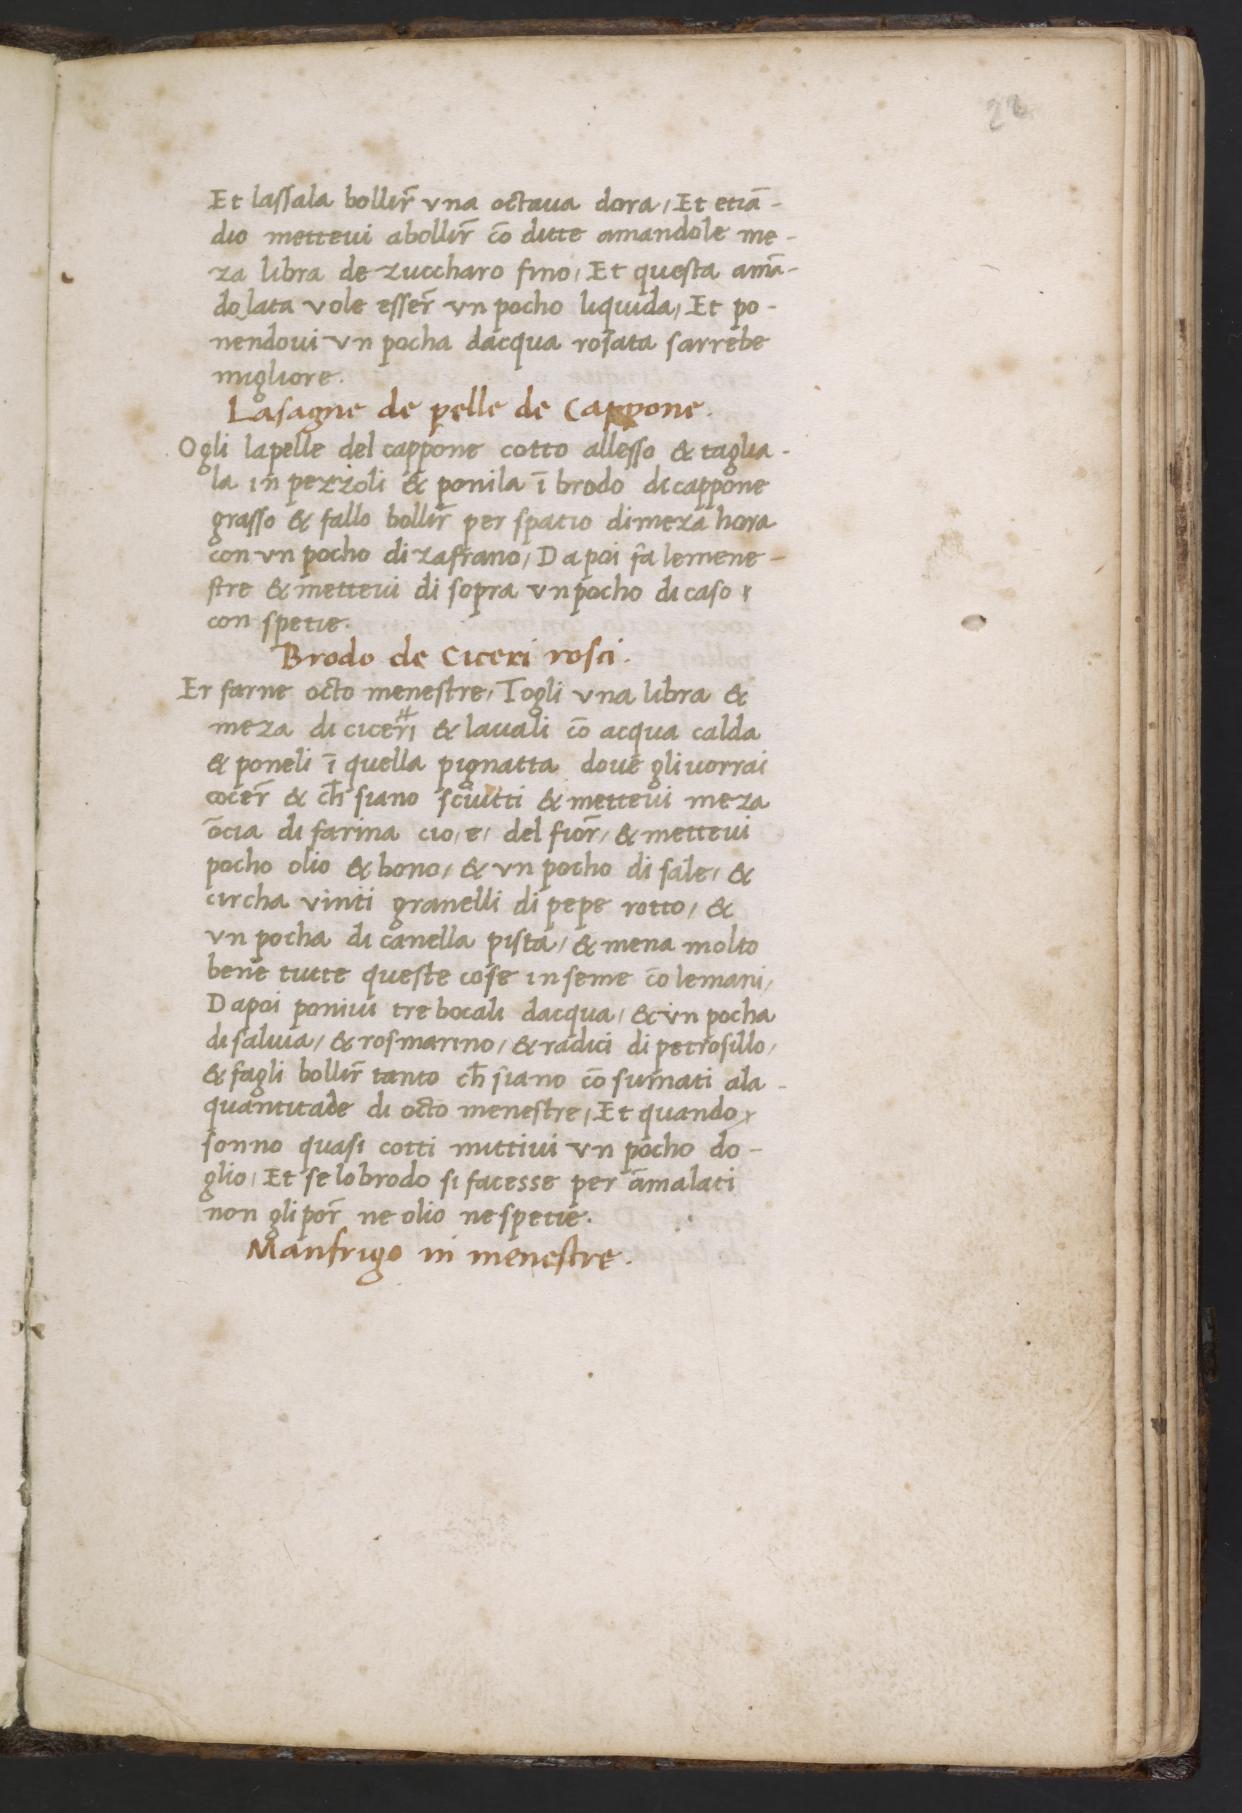 22
Et lassala bollir̃ vna octaua dora, Et etiā-
dio metteui abollir̃ cō ditte amandole me-
za libra de zuccharo fino, Et questa amā-
dolata vole esser̃ vn pocho liquida, Et po-
nendoui vn pocha dacqua rosata sarrebe
migliore.
Lasagne de pelle de Cappone.
Ogli lapelle del cappone cotto allesso & taglia-
la in pezzoli & ponila ī brodo di cappone
grasso & fallo bollir̃ per spatio dimeza hora
con vn pocho di zafrano, Dapoi fa lemene-
stre & metteui di sopra vn pocho di caso
con spetie.
Brodo de Ciceri rosci.
Er farne octo menestre, Togli vna libra &
meza di ciceri & lauali cō acqua calda
& poneli ī quella pignatta doue gli uorrai
cocer̃ & ch̄ siano sciutti & metteui meza
ōcia di farina cio, e, del fior̃, & metteui
pocho olio & bono, & vn pocho di sale, &
circha vinti granelli di pepe rotto, &
vn pocha di canella pista, & mena molto
bene tutte queste cose inseme cō lemani,
Dapoi poniui tre bocali dacqua, & vn pocha
di saluia, & rosmarino, & radici di petrosillo,
& fagli bollir̃ tanto ch̄ siano cō sumati ala
quantitade di octo menestre, Et quando
sonno quasi cotti mittiui vn pocho do-
glio, Et se lo brodo si facesse per āmalati
non gli por̃ ne olio ne spetie.
Manfrigo in menestre.